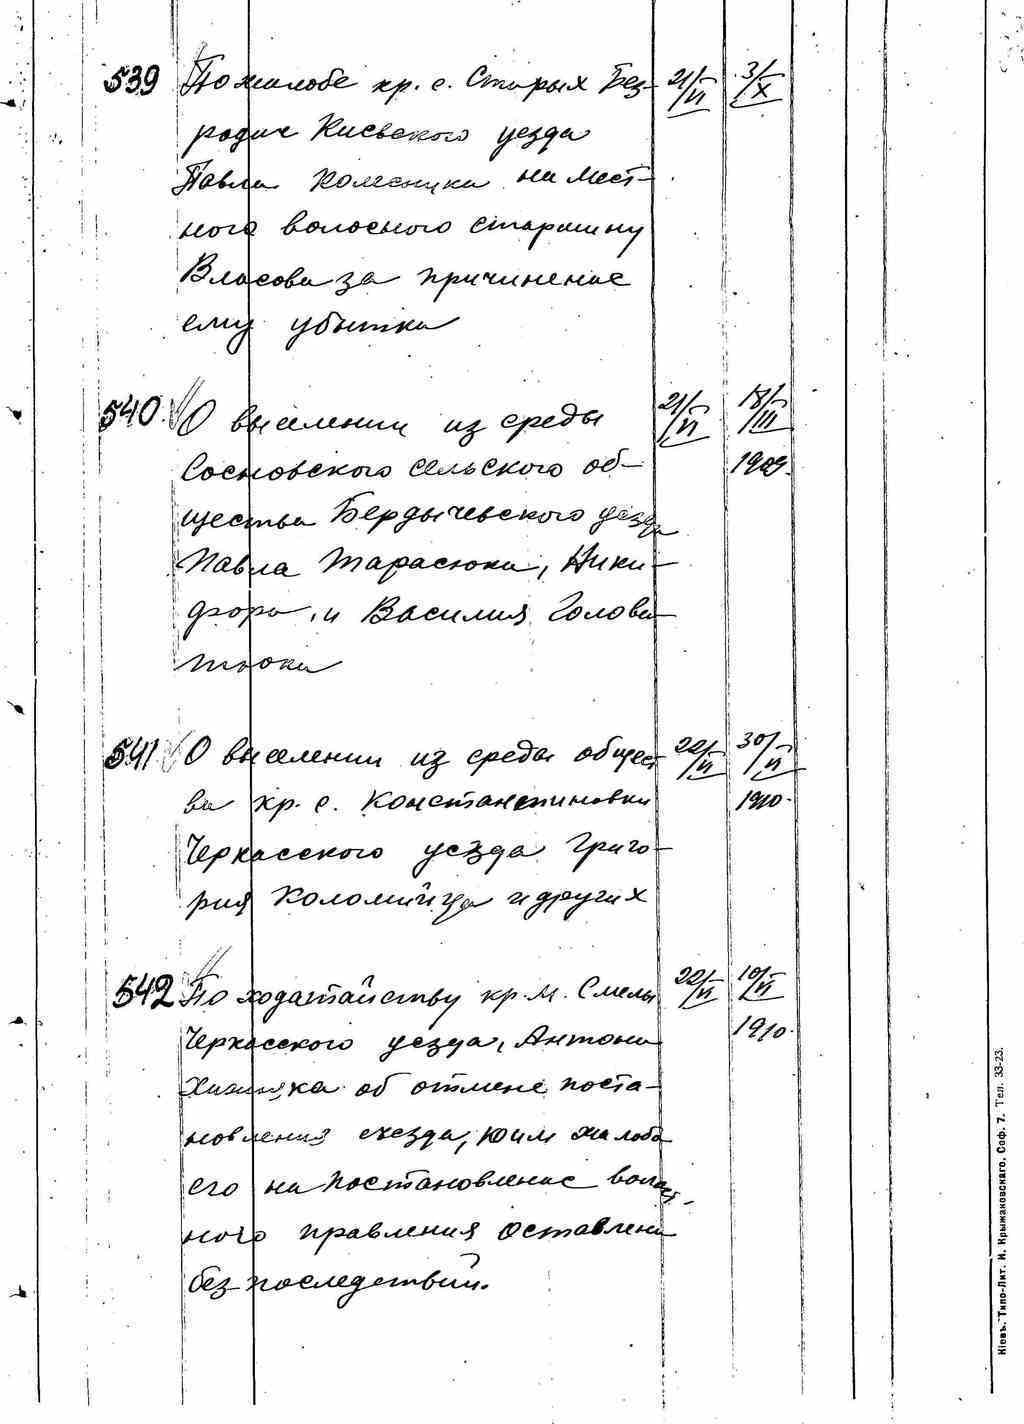 539 По жалобе кр. с. Старых Без- 21/VI 3/X
радич Киевского уезда
Павла Колесника на мест-
ного волосного старшину
Власова за причинение
ему убытка
540. О выселении из среды 21/VI 18/III
Сосновского сельского об- 1909.
щества Бердычевского уезда
Павла Тарасюка, Ники-
фора, и Василия Голова-
тюка
541 О выселении из среды общест 22/VI 30/VI
ва кр. с. Константиновки 1910.
Черкасского уезда Григо-
рия Коломийца и других
542 По ходатайству кр. м. Смелы 22/VI 10/VI
Черкасского уезда, Антона 1910.
Хижняка об отмене поста-
новления съезда, коим жалоба
его на постановление волост-
ного правления оставлена
без последствий.
Кіевъ. Типо-Лит. И. Крыжановскаго. Соф. 7. Тел. 33-23.